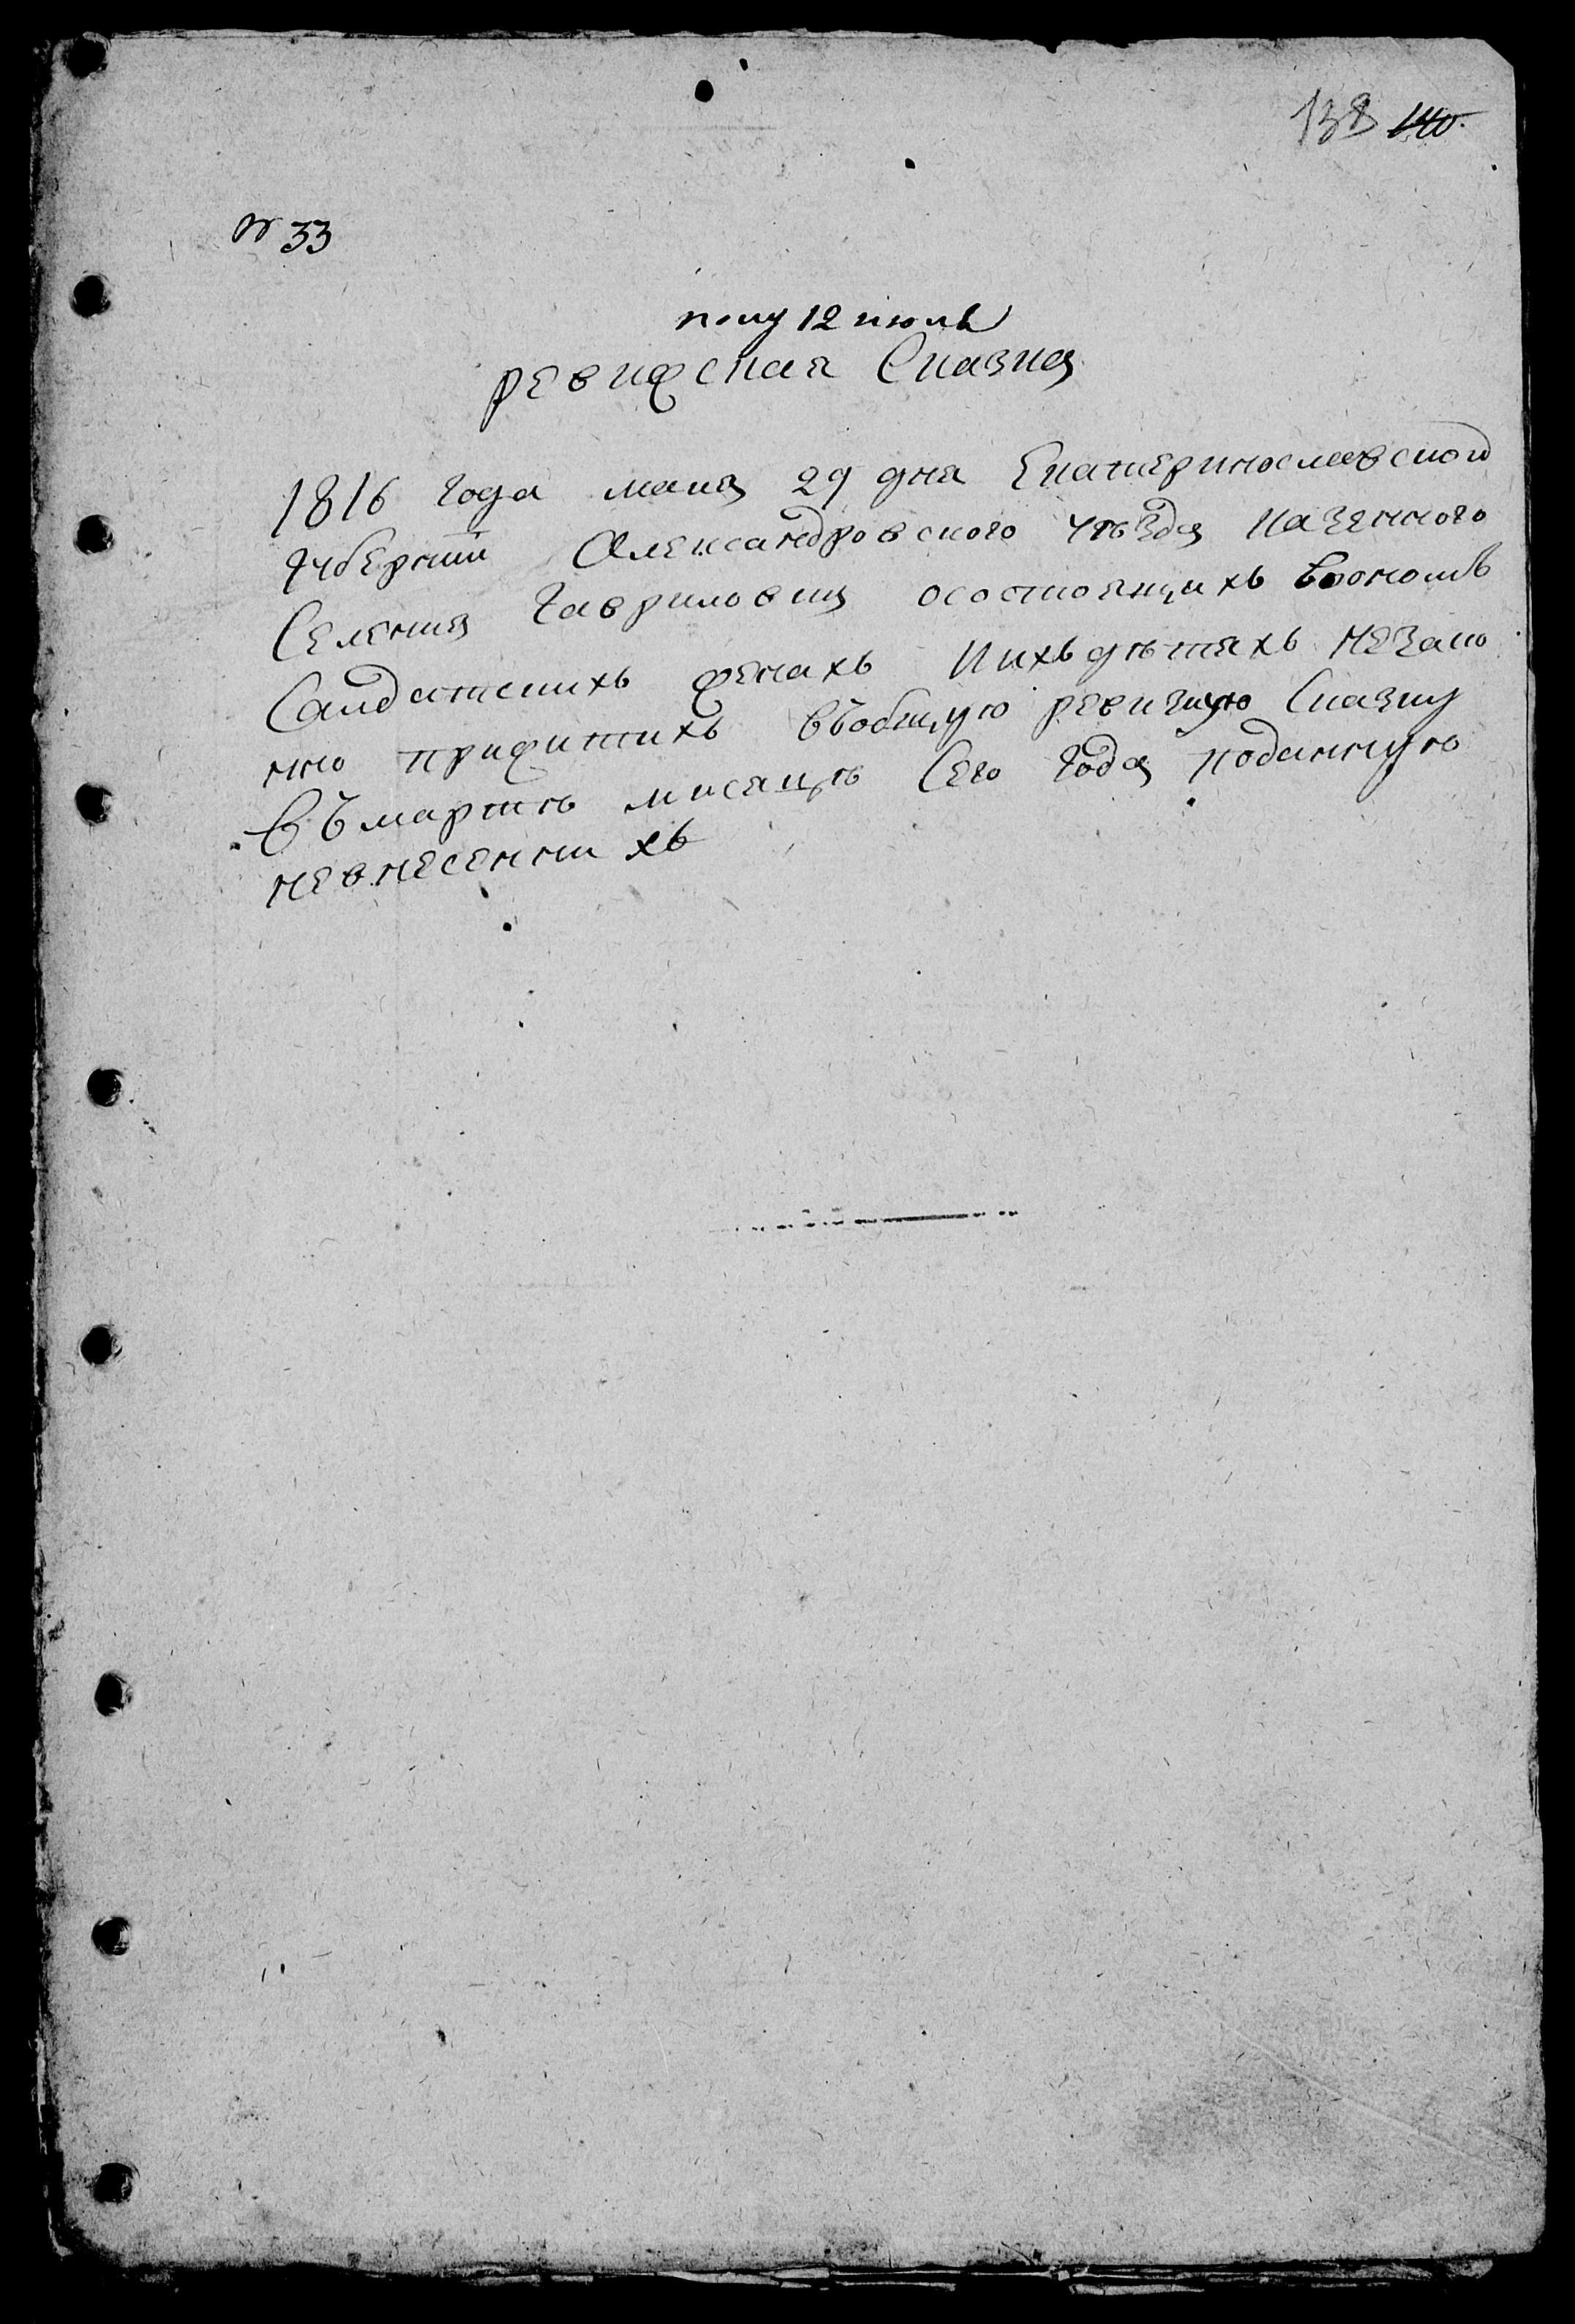 138 140.
№ 33
полу 12 июля
ревижская Сказка
1816 года маия 29 дня Екатеринославской
губернии Александровского уѣзда казенного
Селения Гавриловки осостоящихъ вономъ
Салдатскихъ женахъ и ихъ дѣтяхъ незако
нно прижитихъ въобщую ревизкую Сказку
въ мартѣ мисяцѣ Сего года поданную
невнесенни хъ